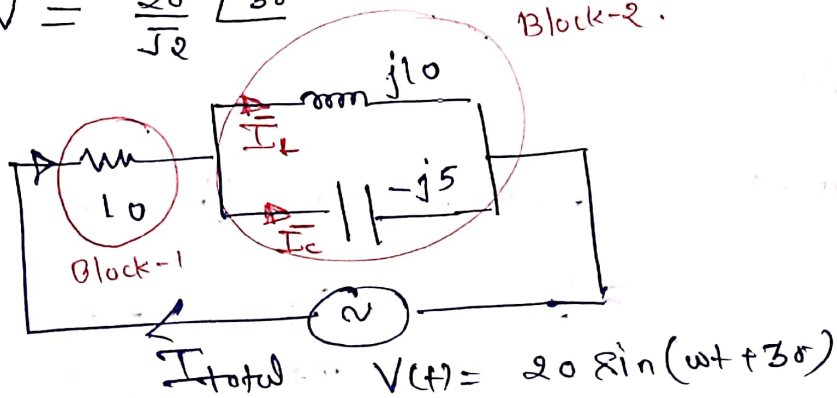 V = 20/√2 ∠30
Block-2.
j10
I_L
10
-j5
I_c
Block-1
~
I_total .. V(t) = 20 sin(ωt+30)